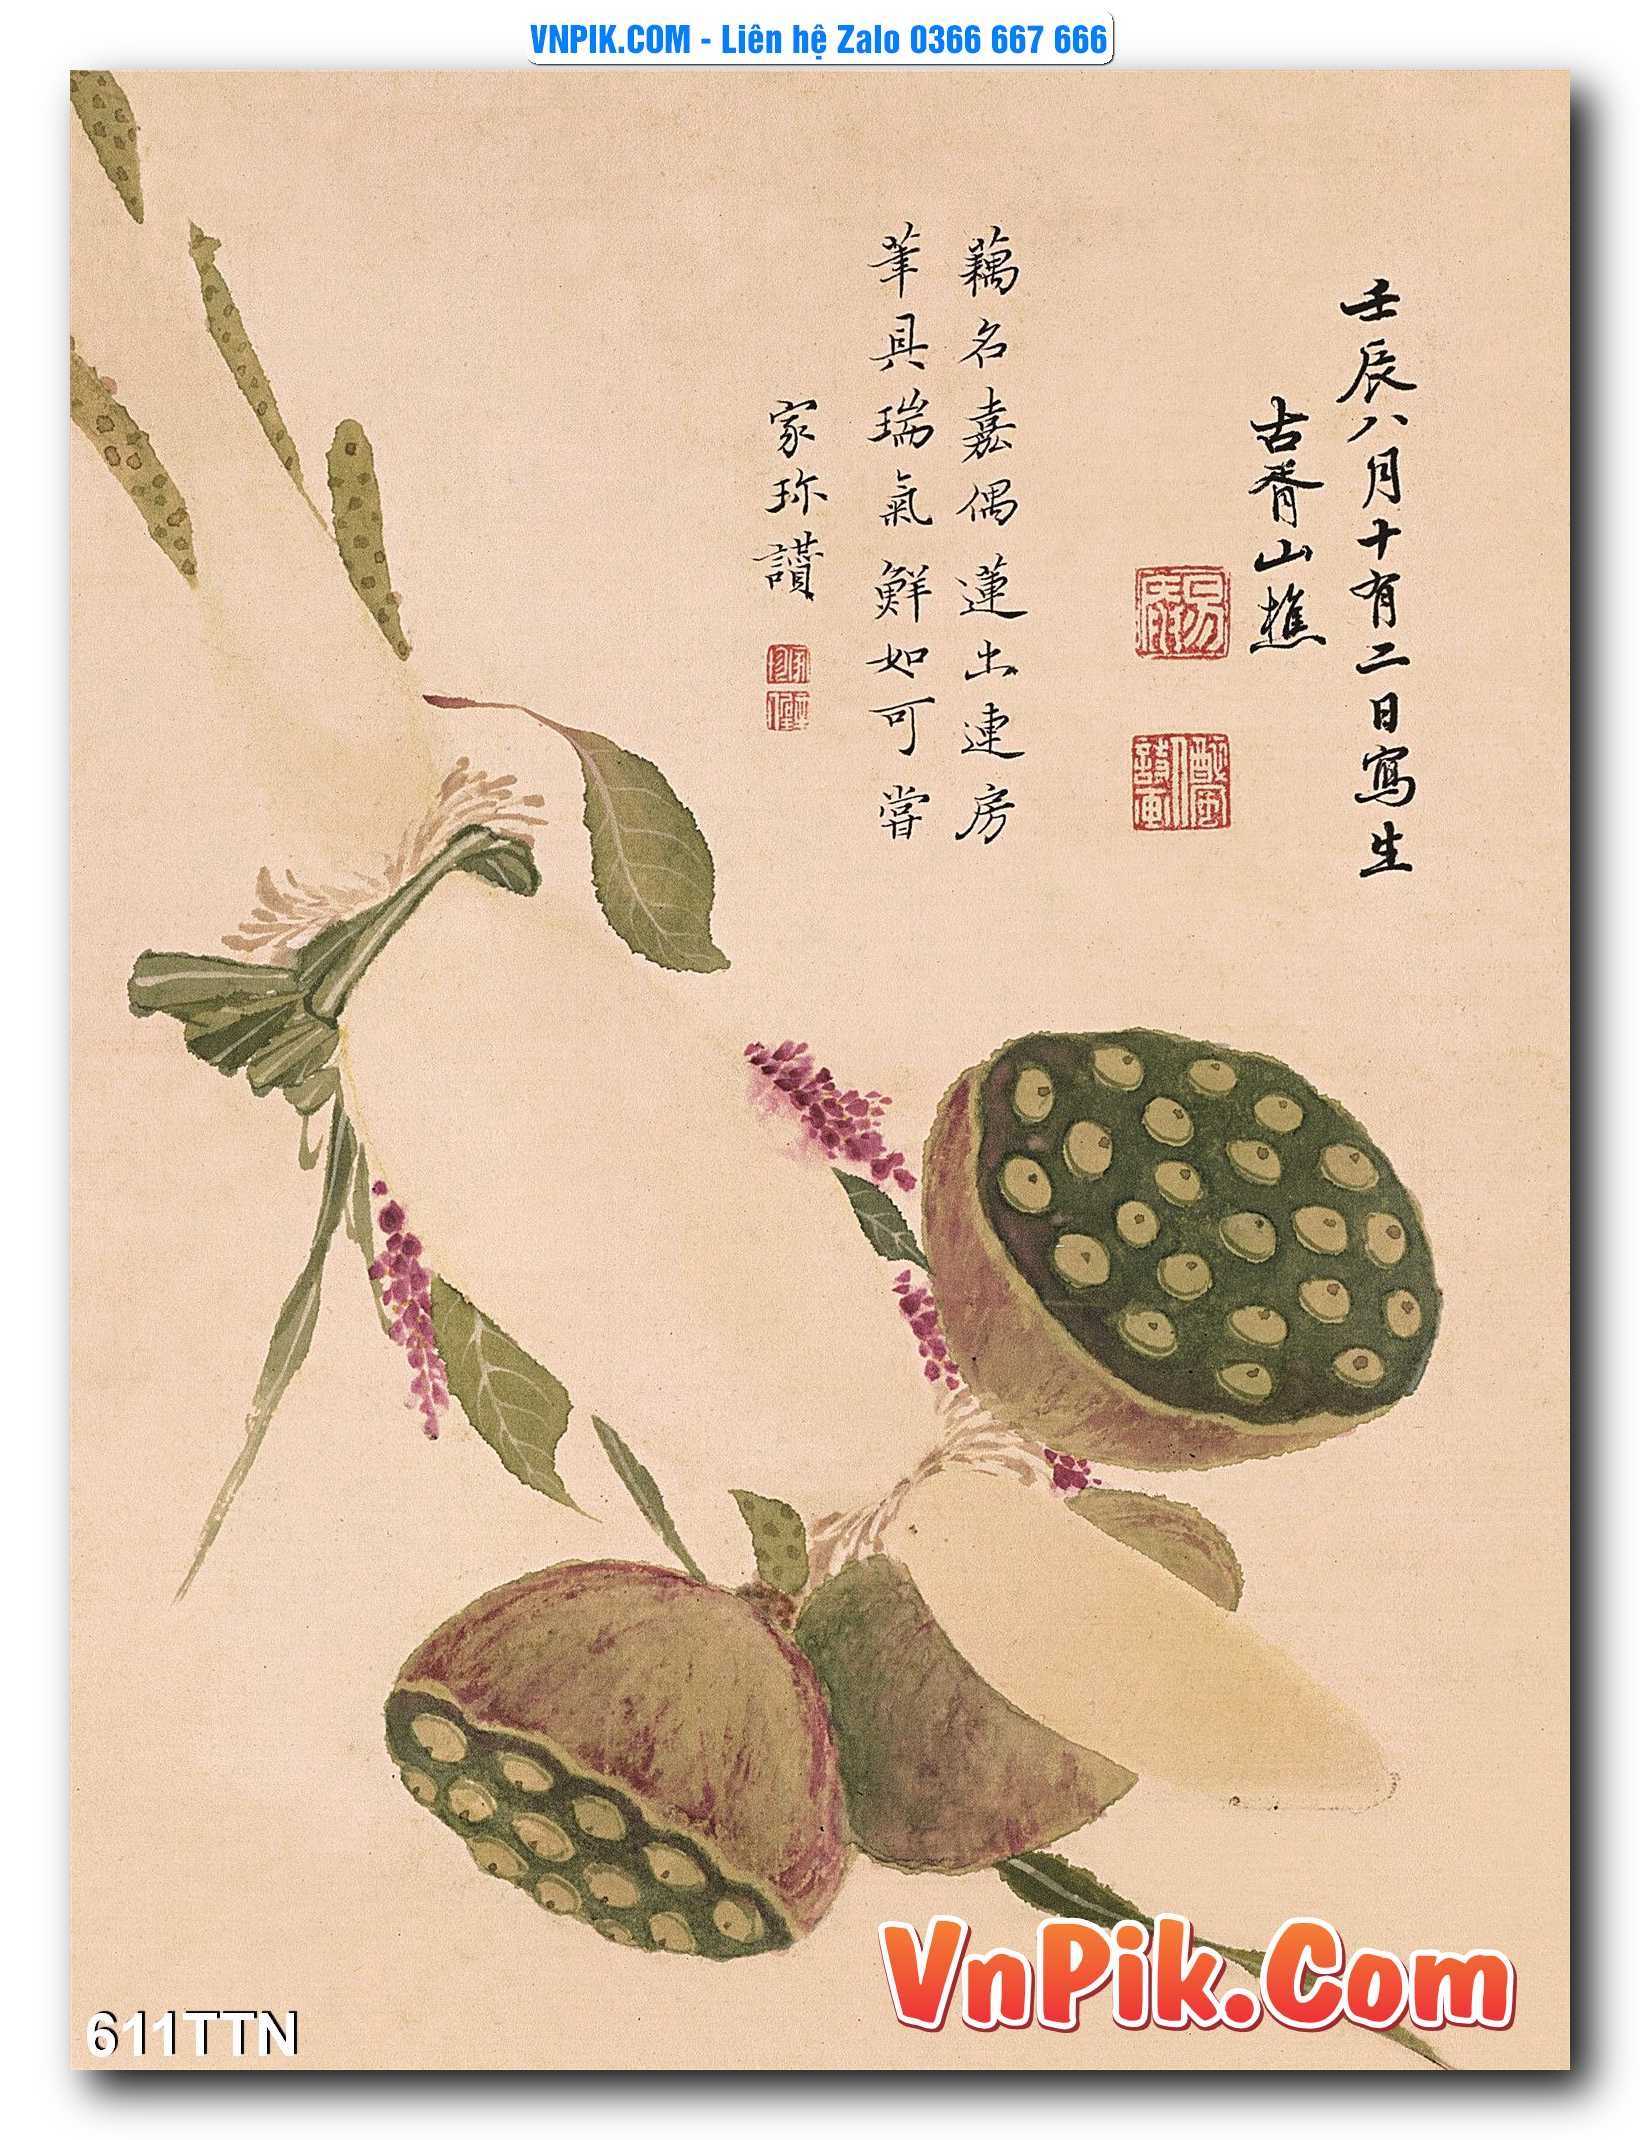 VNPIK.COM - Liên hệ Zalo 0366 667 666
壬辰八月十有二日寫生
古胥山樵
藕名嘉偶蓮出連房
筆具瑞氣鮮如可嘗
家珎讚
VnPik.Com
611TTN